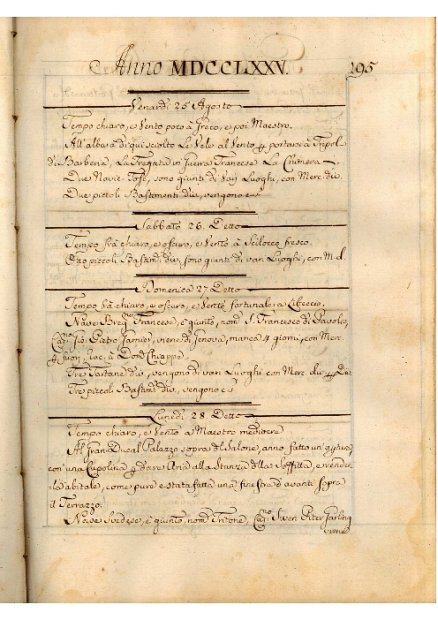 Anno MDCCLXXV. 295
Venardì 25 Agosto
Tempo chiaro, e Vento poco à Greco, e poi Maestro.
All'alba à di qui sciolto Le Vele al Vento p portarsi à Tripoli
di Barberia, La Fregata di Guerra Francese La Chimera
Due Navie Tosc, sono giunti di Varj Luoghi, con Merc div.
Due piccoli Bastimenti div, vengono
Sabbato 26. Detto
Tempo frà chiaro, e oscuro, e Vento à Scilocco fresco.
piccoli Bastim.ti div, sono giunti di vari Luoghi, con M. d.
Domenica 27 Detto
Tempo frà chiaro, e oscuro, e Vento fortunale a Libeccio.
Nave Francese, è giunto, nom.o S. Francesco di Paola,
Cap.no Gio. Pietro viene di Genova, manca 4 giorni, con Merc
à Dom.
Tre Tartane div, vengono di vari Luoghi con Merc div
Tre piccoli Bastim.ti div, vengono
Lunedì 28 Detto
Tempo chiaro, e Vento a Maestro mediocre
Al Gran Ducal Palazzo sopra il Salone, anno fatto un'
con una Cupolina p dare Aria alla Stanzia della Soffitta, e render-
la abitale, come pure è stata fatta una finestra d'avanti sopra
il Terrazzo.
Nave Svedese, è giunto, nom.o Tritone, Cap.no Swen Peter
viene